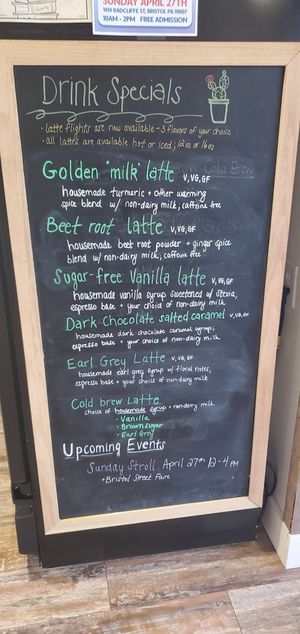 SUNDAY APRIL 27TH
1414 RADCLIFFE ST, BRISTOL PA 19007
10AM - 2PM FREE ADMISSION
Drink Specials
• latte flights are now available - 3 flavors of your choice
• all lattes are available hot or iced; 12oz or 16oz
Golden "milk" latte V, VG, GF
housemade turmeric + other warming
spice blend w/ non-dairy milk, caffeine free
Beet root latte V, VG, GF
housemade beet root powder + ginger spice
blend w/ non-dairy milk, caffeine free
Sugar-free Vanilla latte V, VG, GF
housemade vanilla syrup sweetened w/ stevia,
espresso base + your choice of non-dairy milk
Dark Chocolate salted caramel V, VG, GF
housemade dark chocolate caramel syrup,
espresso base + your choice of non-dairy milk
Earl Grey Latte V, VG, GF
housemade earl grey syrup w/ floral notes,
espresso base + your choice of non-dairy milk
Cold brew Latte
choice of housemade syrup + non-dairy milk
• Vanilla
• Brown sugar
• Earl Grey
Upcoming Events
Sunday Stroll, April 27th 12-4 PM
• Bristol Street Faire